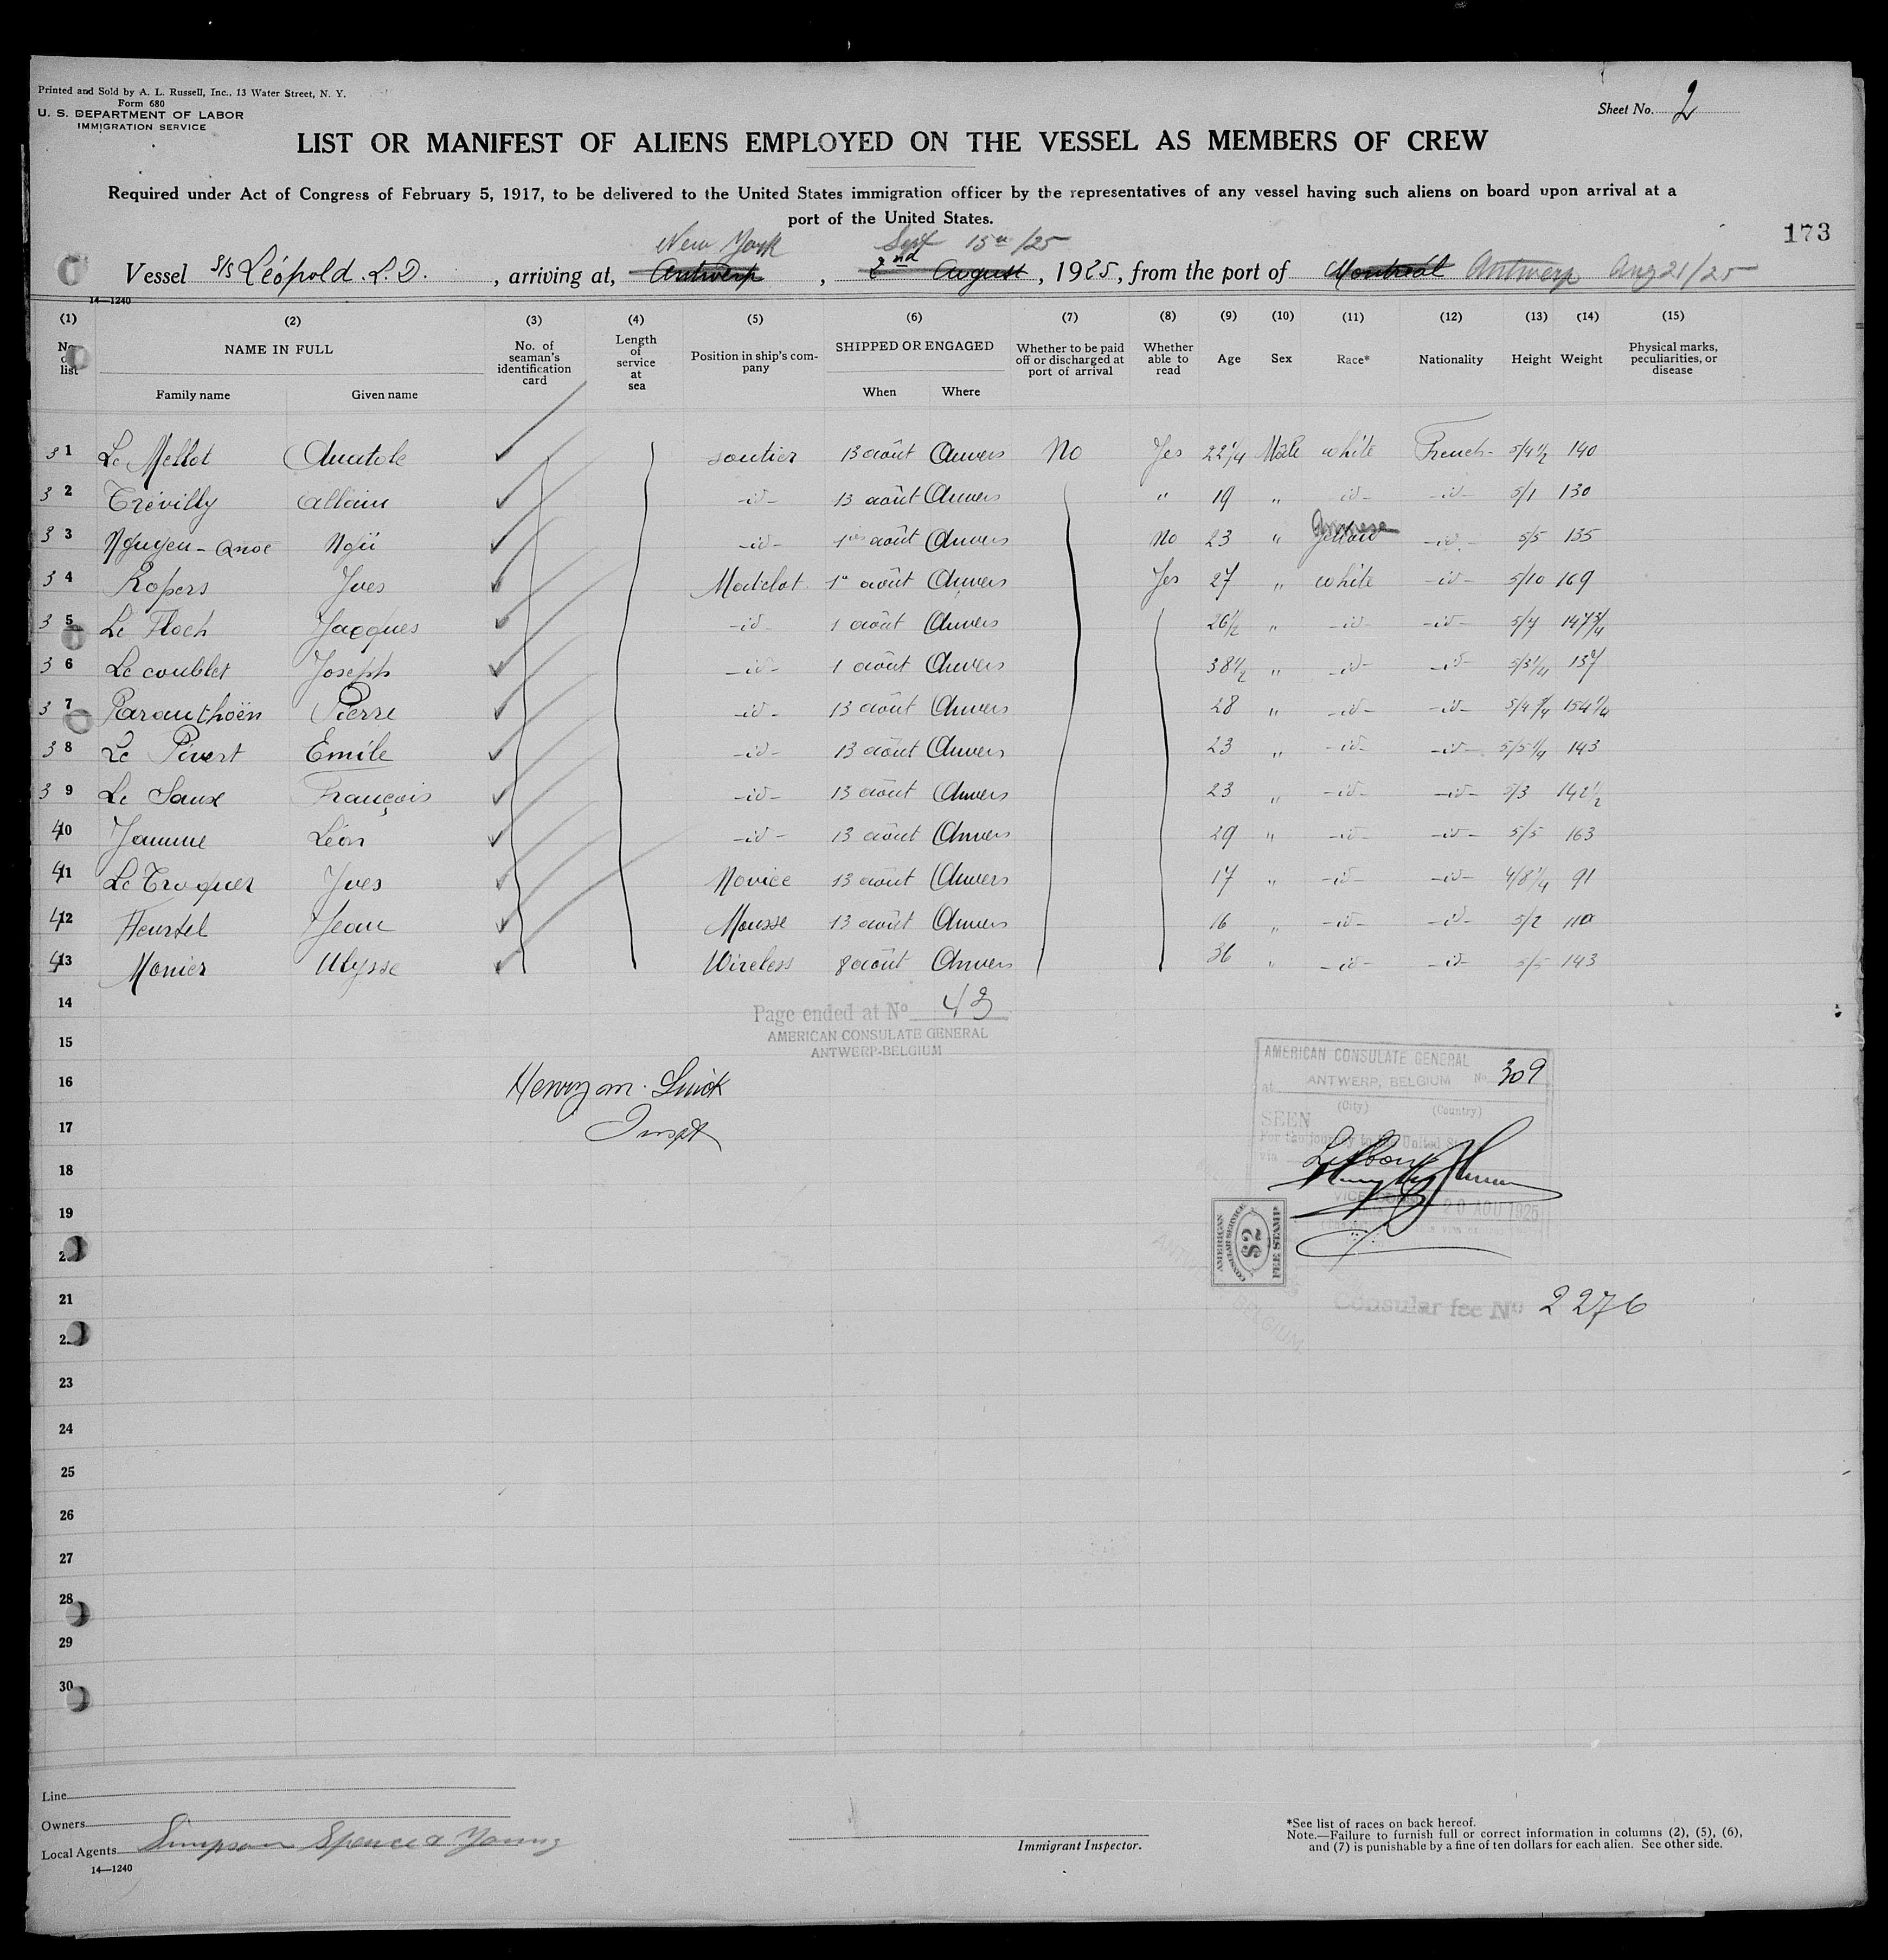 Printed and Sold by A. L. Russell, Inc., 13 Water Street, N. Y.
Form 680
U. S. DEPARTMENT OF LABOR
IMMIGRATION SERVICE
Sheet No. 2
LIST OR MANIFEST OF ALIENS EMPLOYED ON THE VESSEL AS MEMBERS OF CREW
Required under Act of Congress of February 5, 1917, to be delivered to the United States immigration officer by the representatives of any vessel having such aliens on board upon arrival at a
port of the United States.
173
New York Sept 15th/25
Vessel S/S Léopold. L. D. , arriving at, Antwerp , 2nd August , 1925, from the port of Montreal Antwerp Aug 21/25
14—1240
(1) (2) (3) (4) (5) (6) (7) (8) (9) (10) (11) (12) (13) (14) (15)
No. of list NAME IN FULL No. of seaman's identification card Length of service at sea Position in ship's company SHIPPED OR ENGAGED Whether to be paid off or discharged at port of arrival Whether able to read Age Sex Race* Nationality Height Weight Physical marks, peculiarities, or disease
Family name Given name When Where
3 1 Le Mellot Anatole ✓ soutier 13 août Anvers No Yes 22 1/4 Male white French 5/4 1/2 140
3 2 Trévilly Allain ✓ -id- 13 août Anvers " 19 " -id- -id- 5/1 130
3 3 Nguyen-Quoc Ngũ ✓ -id- 1er août Anvers No 23 " yellow -id- 5/5 135
3 4 Ropers Yves ✓ Matelot 1er août Anvers Yes 27 " white -id- 5/10 169
3 5 Le Floch Jacques ✓ -id- 1 août Anvers 26 1/2 " -id- -id- 5/7 147 3/4
3 6 Le coublet Joseph ✓ -id- 1 août Anvers 38 1/2 " -id- -id- 5/3 1/4 137
3 7 Paranthoën Pierre ✓ -id- 13 août Anvers 28 " -id- -id- 5/4 3/4 154 1/4
3 8 Le Pivert Emile ✓ -id- 13 août Anvers 23 " -id- -id- 5/5 1/4 143
3 9 Le Saux François ✓ -id- 13 août Anvers 23 " -id- -id- 5/3 142 1/2
4 10 Jamme Léon ✓ -id- 13 août Anvers 29 " -id- -id- 5/5 163
4 11 Le Troquer Yves ✓ Novice 13 août Anvers 17 " -id- -id- 4/8 1/4 91
4 12 Heurtel Jean ✓ Mousse 13 août Anvers 16 " -id- -id- 5/2 110
4 13 Monier Ulysse ✓ Wireless 8 août Anvers 36 " -id- -id- 5/5 143
14
Page ended at No 43
AMERICAN CONSULATE GENERAL
ANTWERP-BELGIUM
15
16
Henry M.
Inspt
AMERICAN CONSULATE GENERAL
at ANTWERP, BELGIUM No. 309
(City) (Country)
SEEN
For the journey to the United States
via
VICE CONSUL
20 AOU 1925
17
18
19
AMERICAN CONSULAR SERVICE $2 FEE STAMP
ANTWERP, BELGIUM
21
Consular fee No 2276
23
24
25
26
27
28
29
30
Line
Owners
Local Agents Simpson Spence & Young
14—1240
Immigrant Inspector.
*See list of races on back hereof.
Note.—Failure to furnish full or correct information in columns (2), (5), (6),
and (7) is punishable by a fine of ten dollars for each alien. See other side.